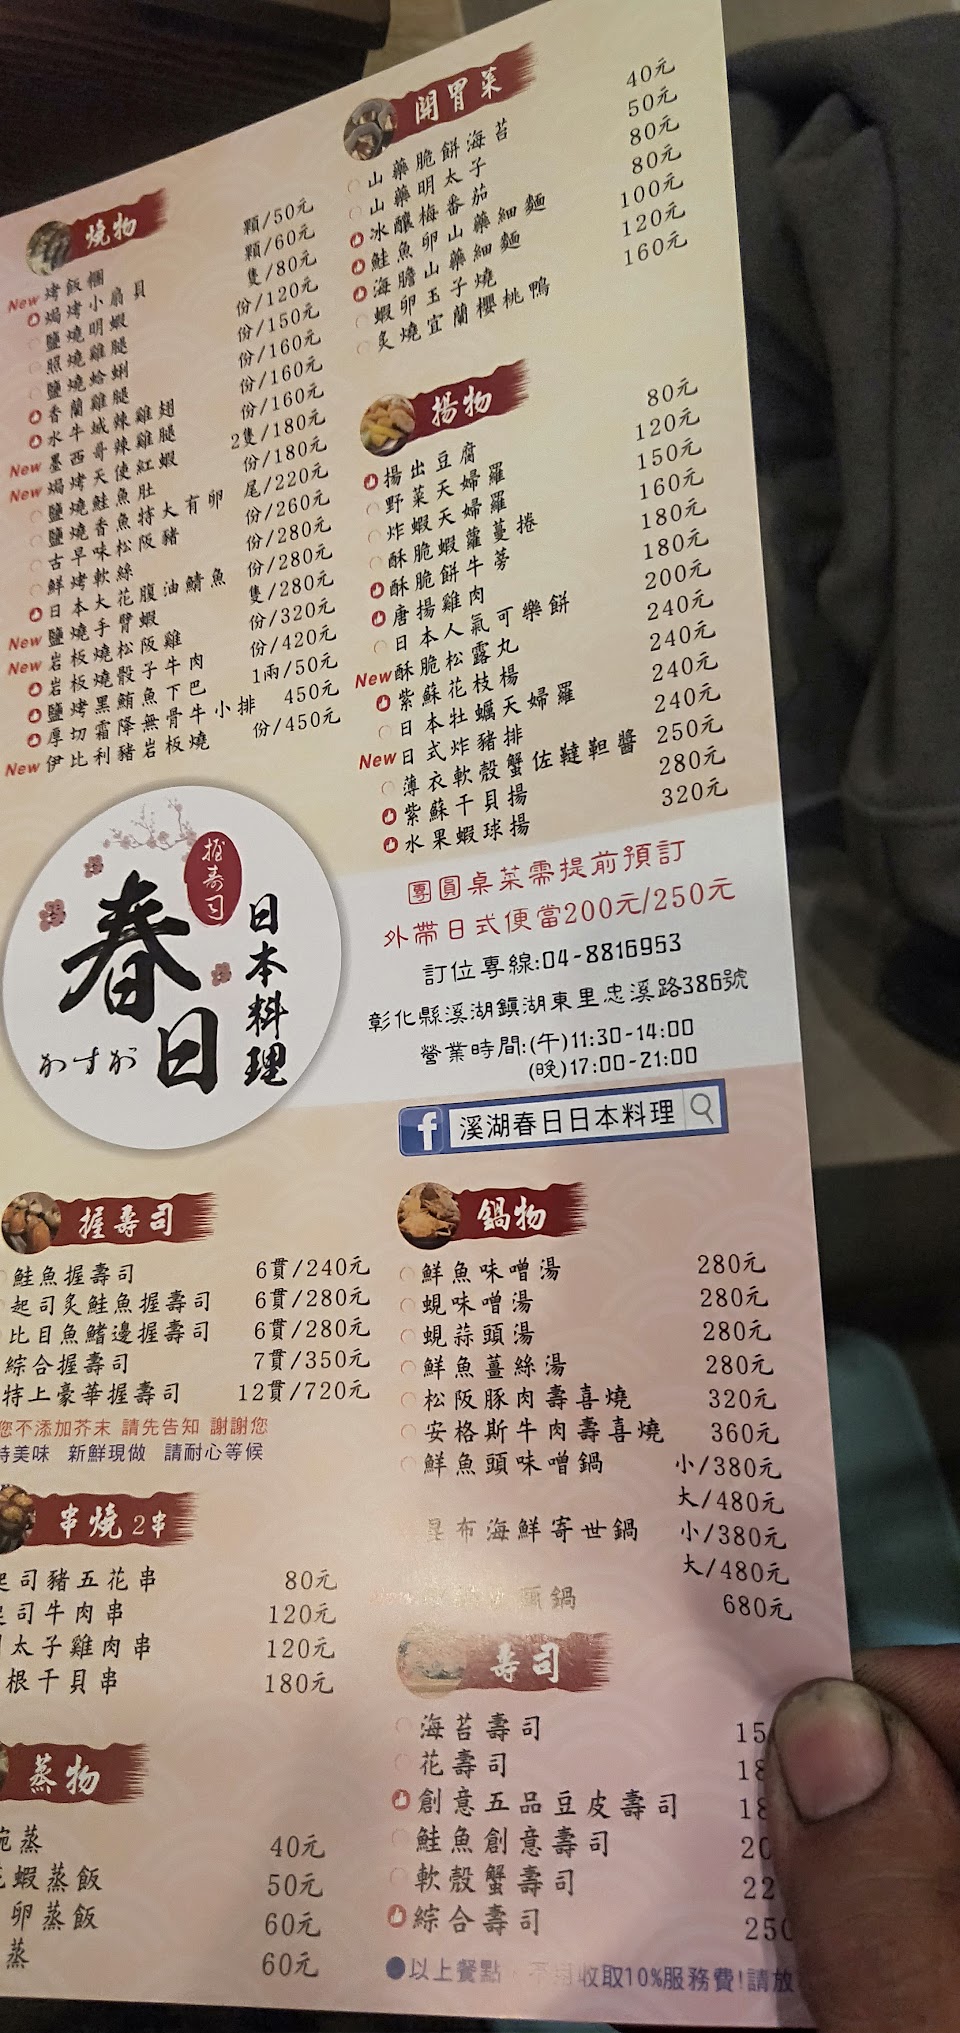 開胃菜
山藥脆餅海苔 40元
山藥明太子 50元
冰釀梅番茄 80元
鮭魚卵山藥細麵 80元
海膽山藥細麵 100元
蝦卵玉子燒 120元
炙燒宜蘭櫻桃鴨 160元
燒物
New 烤飯糰 顆/50元
焗烤小扇貝 顆/60元
鹽燒明蝦 隻/80元
照燒雞腿 份/120元
鹽燒蛤蜊 份/150元
香蘭雞腿 份/160元
水牛城辣雞翅 份/160元
New 墨西哥辣雞腿 份/160元
New 焗烤天使紅蝦 2隻/180元
鹽燒鮭魚肚 份/180元
鹽燒香魚特大有卵 尾/220元
古早味松阪豬 份/260元
鮮烤軟絲 份/280元
日本大花腹油鯖魚 份/280元
New 鹽燒手臂蝦 隻/280元
New 岩板燒松阪雞 份/320元
岩板燒骰子牛肉 份/420元
鹽烤黑鮪魚下巴 1兩/50元
厚切霜降無骨牛小排 450元
New 伊比利豬岩板燒 份/450元
揚物
揚出豆腐 80元
野菜天婦羅 120元
炸蝦天婦羅 150元
酥脆蝦蘿蔓捲 160元
酥脆餅牛蒡 180元
唐揚雞肉 180元
日本人氣可樂餅 200元
New 酥脆松露丸 240元
紫蘇花枝楊 240元
日本牡蠣天婦羅 240元
New 日式炸豬排 240元
薄衣軟殼蟹佐韃靼醬 250元
紫蘇干貝揚 280元
水果蝦球揚 320元
握壽司
春日
かすが
日本料理
團圓桌菜需提前預訂
外帶日式便當200元/250元
訂位專線:04-8816953
彰化縣溪湖鎮湖東里忠溪路386號
營業時間:(午)11:30-14:00
(晚)17:00-21:00
f 溪湖春日日本料理
握壽司
鮭魚握壽司 6貫/240元
起司炙鮭魚握壽司 6貫/280元
比目魚鰭邊握壽司 6貫/280元
綜合握壽司 7貫/350元
特上豪華握壽司 12貫/720元
您不添加芥末 請先告知 謝謝您
美味 新鮮現做 請耐心等候
串燒2串
起司豬五花串 80元
起司牛肉串 120元
太子雞肉串 120元
根干貝串 180元
蒸物
蒸 40元
蝦蒸飯 50元
卵蒸飯 60元
蒸 60元
鍋物
鮮魚味噌湯 280元
蜆味噌湯 280元
蜆蒜頭湯 280元
鮮魚薑絲湯 280元
松阪豚肉壽喜燒 320元
安格斯牛肉壽喜燒 360元
鮮魚頭味噌鍋 小/380元
大/480元
昆布海鮮寄世鍋 小/380元
大/480元
鍋 680元
壽司
海苔壽司 15
花壽司 18
創意五品豆皮壽司 18
鮭魚創意壽司 20
軟殼蟹壽司 22
綜合壽司 250
●以上餐點 收取10%服務費!請放